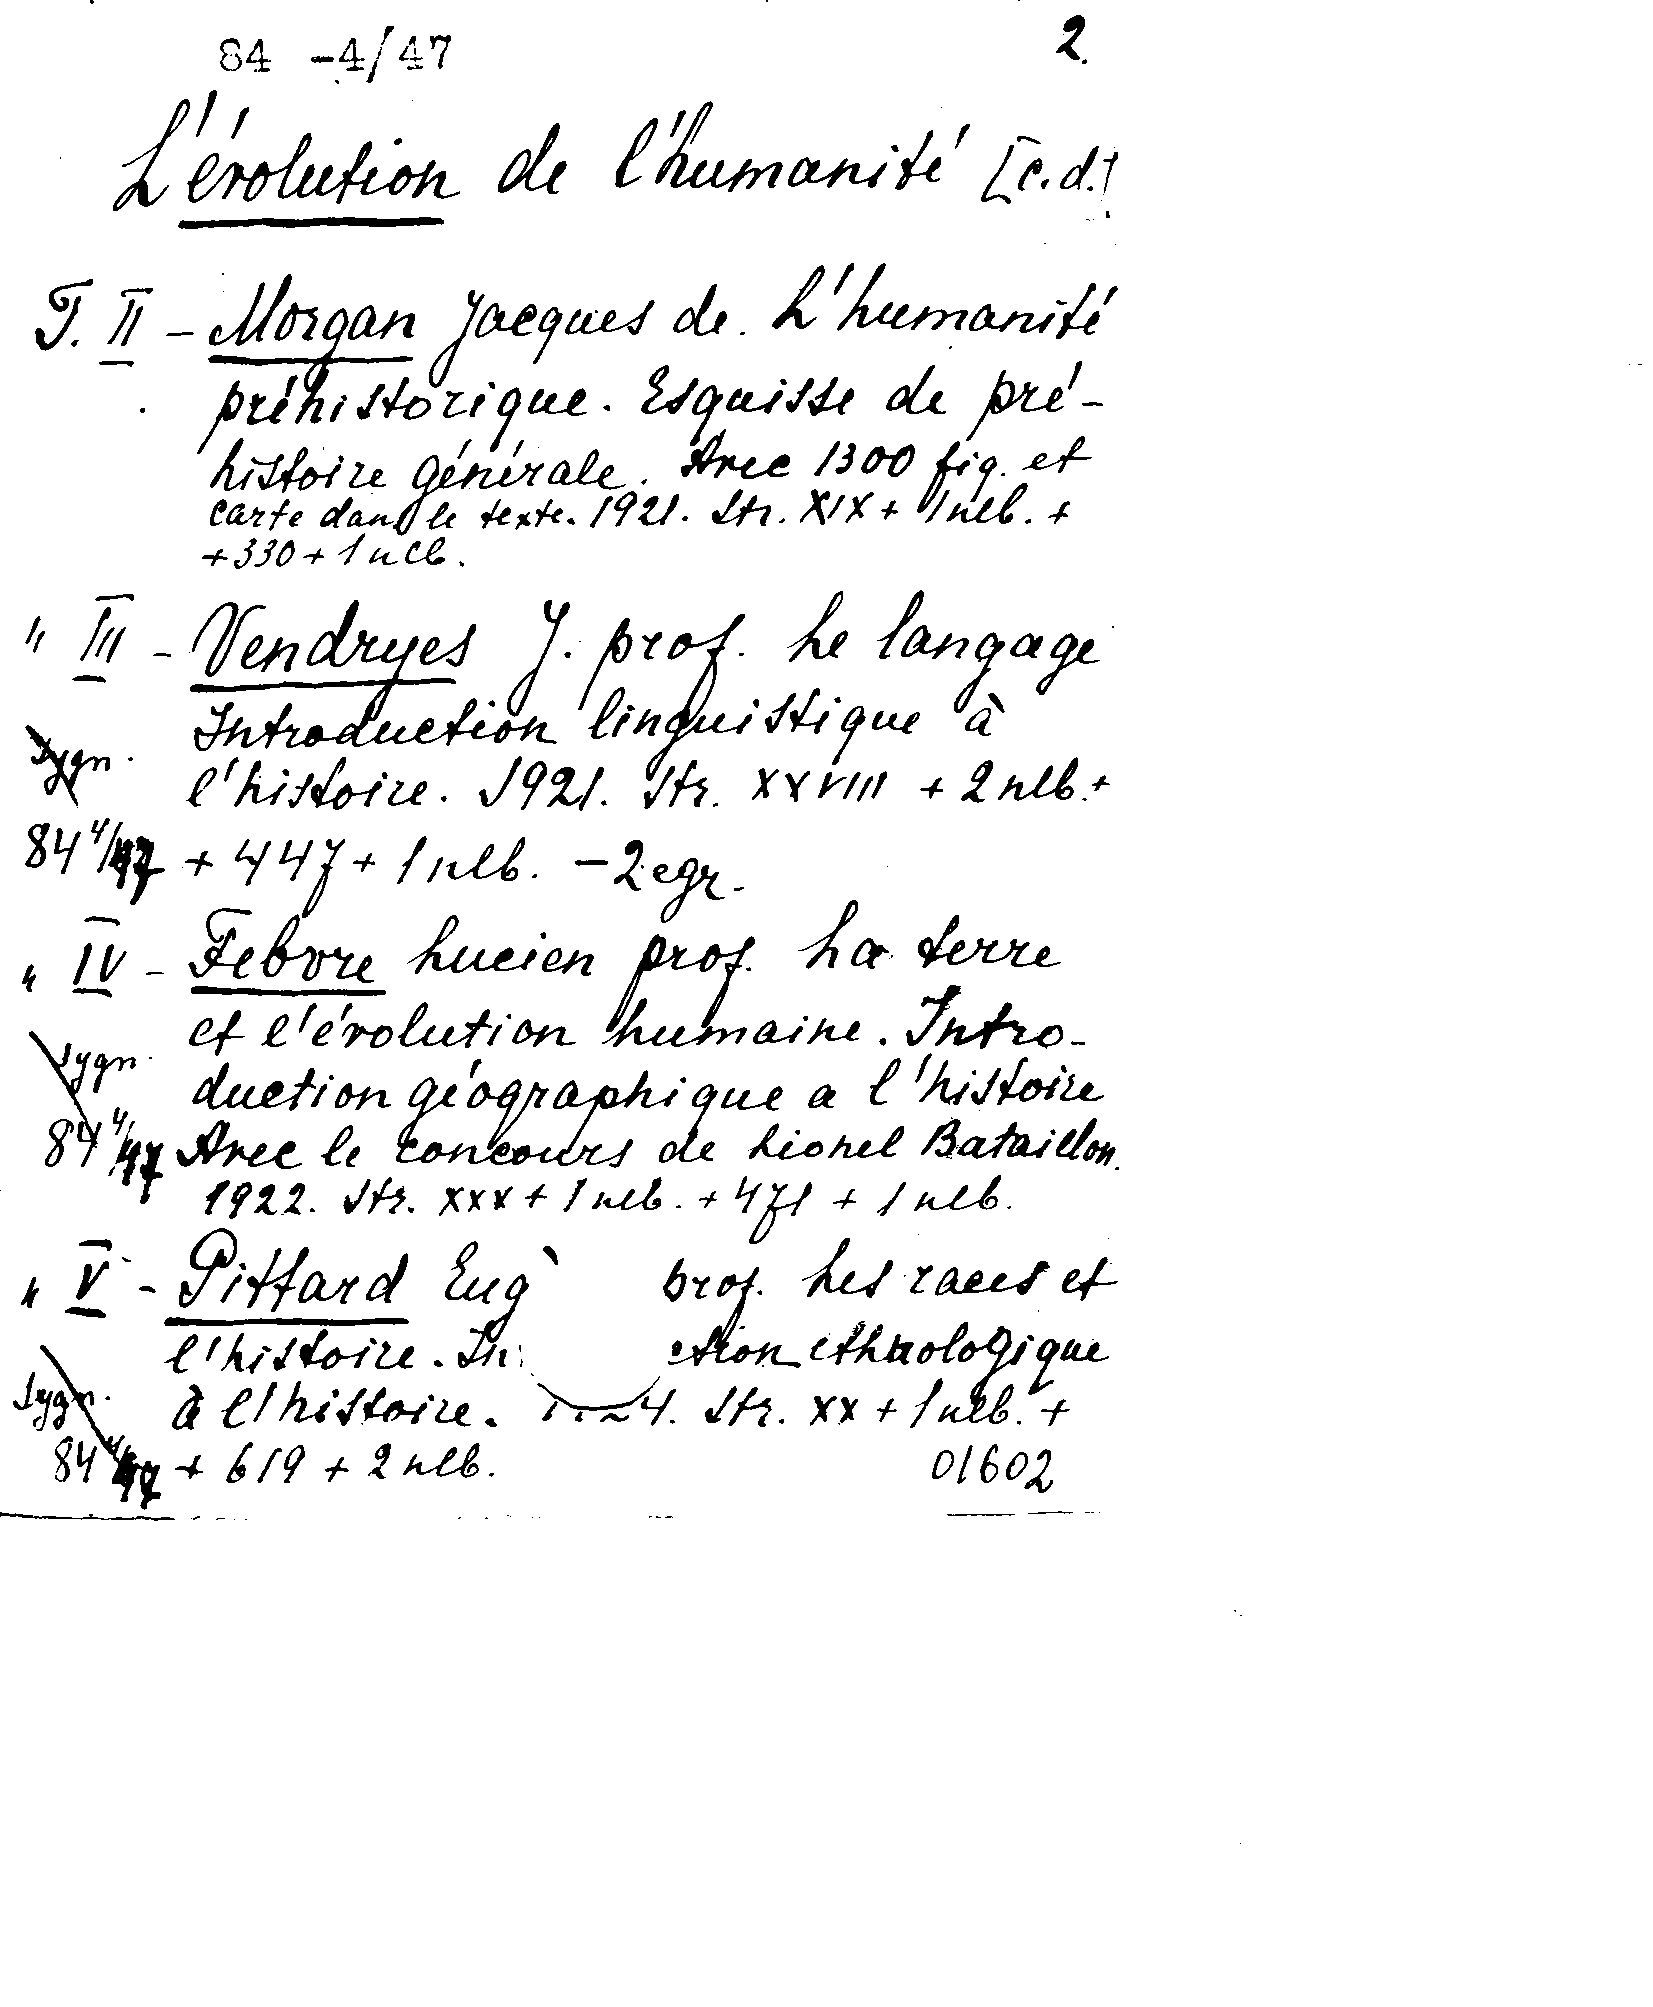 84 -4/47 2.
L'évolution de l'humanité [c.d.]
T. II - Morgan Jacques de. L'humanité
préhistorique. Esquisse de pré-
histoire générale. Avec 1300 fig. et
carte dans le texte. 1921. Str. XIX + 1 nlb. +
+ 330 + 1 nlb.
" III - Vendryes J. prof. Le langage
Introduction linguistique à
Sygn. l'histoire. 1921. Str. XXVIII + 2 nlb. +
84 4/47 + 447 + 1 nlb. - 2 egz.
" IV - Febvre Lucien prof. La terre
et l'évolution humaine. Intro-
Sygn. duction géographique a l'histoire
84 4/47 Avec le concours de Lionel Bataillon.
1922. Str. XXX + 1 nlb. + 471 + 1 nlb.
" V - Pittard Eugè prof. Les races et
l'histoire. In ction ethnologique
Sygn. à l'histoire. 4. Str. XX + 1 nlb. +
84 4/47 + 619 + 2 nlb. 01602